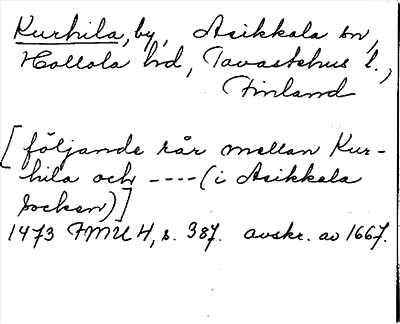 Kurhila, by, Asikkala sn,
Hollola hd, Tavastehus l.,
Finland
[följande rår mellan Kur-
hila och ---- (i Asikkala
socken)]
1473 FMU 4, s. 387. avskr. av 1667.